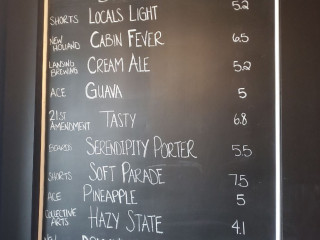 SHORTS LOCALS LIGHT 5.2
NEW HOLLAND CABIN FEVER 6.5
LANSING BREWING CREAM ALE 5.2
ACE GUAVA 5
21ST AMENDMENT TASTY 6.8
SERENDIPITY PORTER 5.5
SHORTS SOFT PARADE 7.5
ACE PINEAPPLE 5
COLLECTIVE ARTS HAZY STATE 4.1